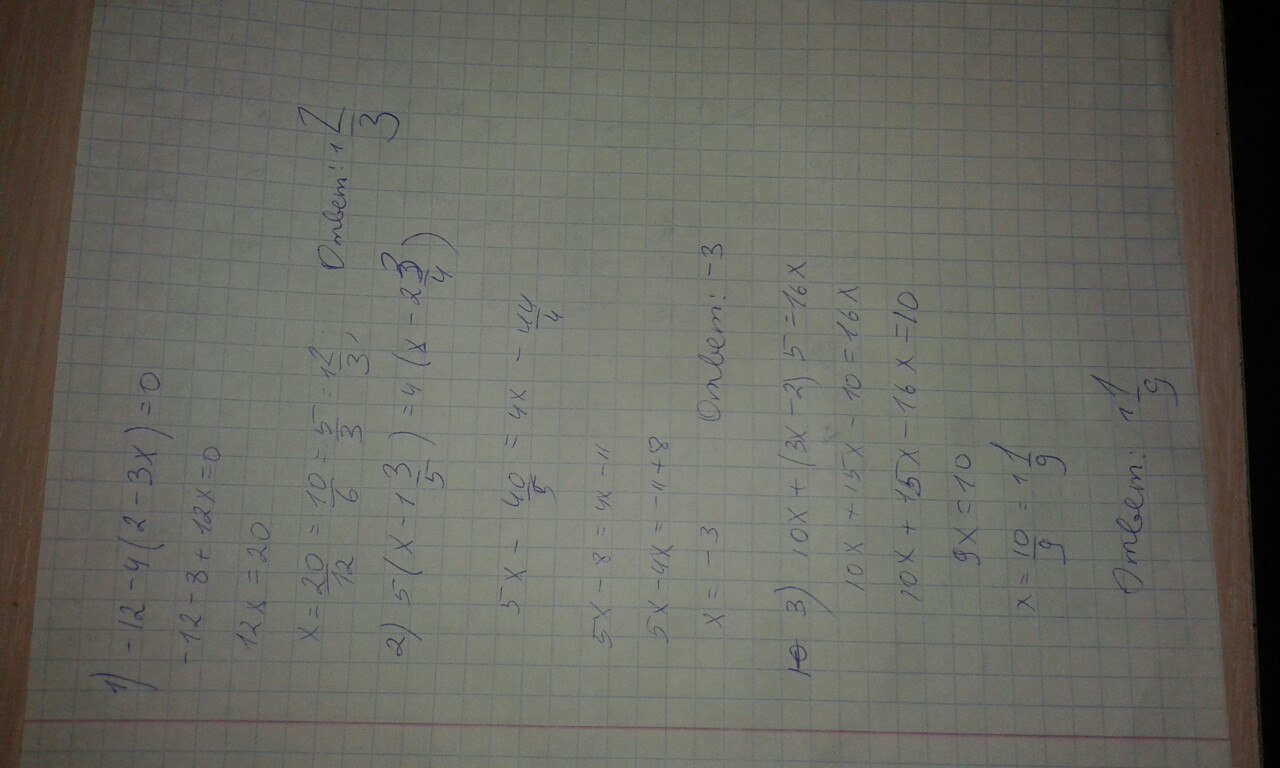 1) -12-4(2-3x)=0
-12-8+12x=0
12x=20
x=20/12=10/6=5/3=1 2/3; Ответ: 1 2/3
2) 5(x-1 3/5)=4(x-2 3/4)
5x-40/5=4x-44/4
5x-8=4x-11
5x-4x=-11+8
x=-3 Ответ: -3
3) 10x+(3x-2)5=16x
10x+15x-10=16x
10x+15x-16x=10
9x=10
x=10/9=1 1/9
Ответ: 1 1/9